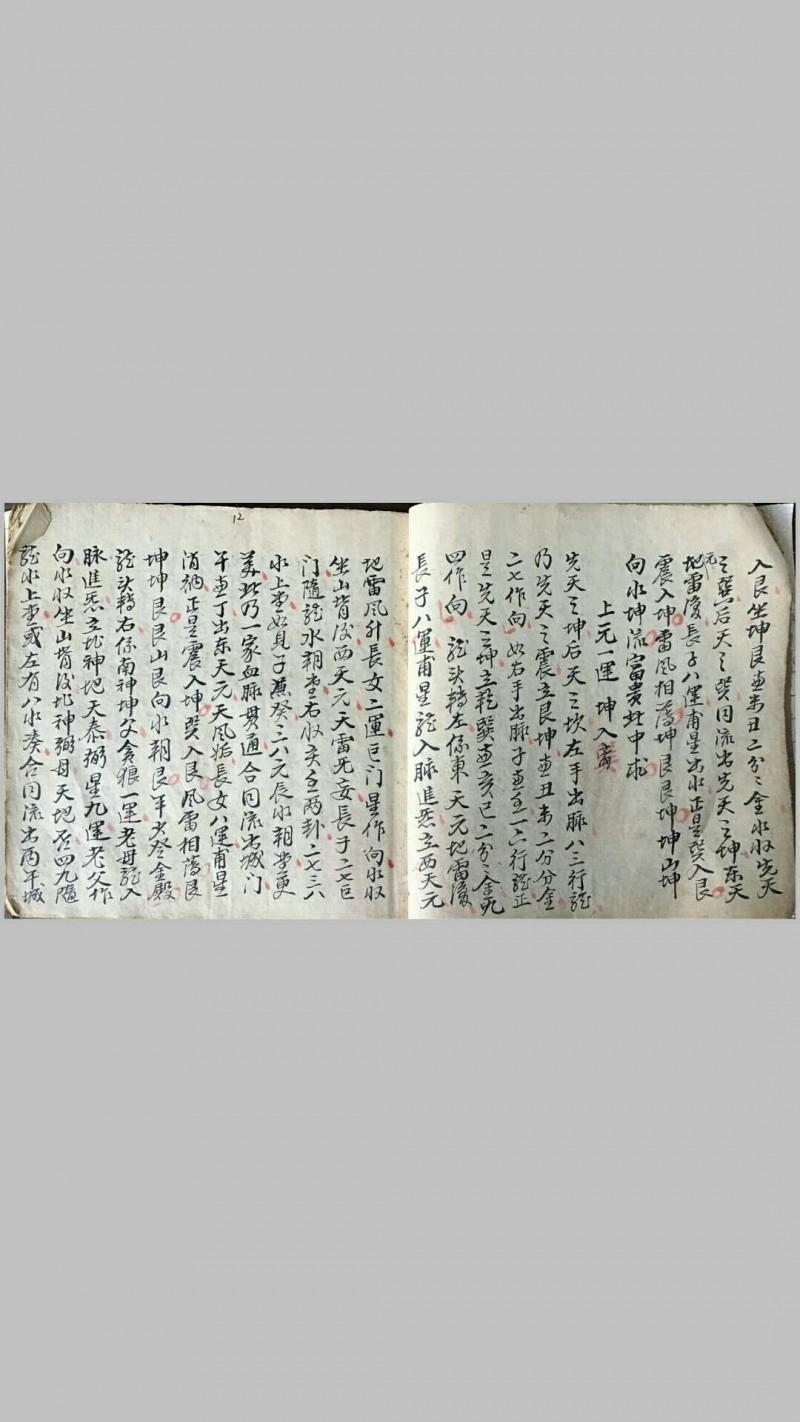 入艮坐坤艮兼未丑二分分金水収先天
之巽后天之巽同流出先天之坤东天
元地雷復長子八運甫星出水正是巽入艮
震入坤雷風相薄坤艮艮坤坤山坤
向水坤流富貴此中求
上元一運 坤入
先天之坤后天之坎左手出脉八三行龍
乃先天之震立艮坤兼丑未二分分金
二七作向 如右手出脉子兼壬一六行龍正
是先天之坤立乾巽兼亥巳二分分金九
四作向 龍头轉左係東天元地雷復
長子八運甫星龍入脉進炁立西天元
12
地雷風升長女二運巨门星作向水収
坐山背後西天元天雷无妄長子二七巨
门隨龍水朝堂右収亥壬两卦二七三六
水上堂如見子兼癸二八元辰水朝堂更
美此乃一家血脉贯通合同流出城门
午兼丁出东天元天風姤長女八運甫星
消納正是震入坤巽入艮風雷相薄艮
坤坤艮艮山艮向水朝艮年少登金殿
龍头轉右係南神坤父貪狼一運老母龍入
脉進炁立北神地天泰弼星九運老父作
向水収坐山背後北神弼母天地否四九隨
龍水上堂或左有八水湊合同流出丙午城